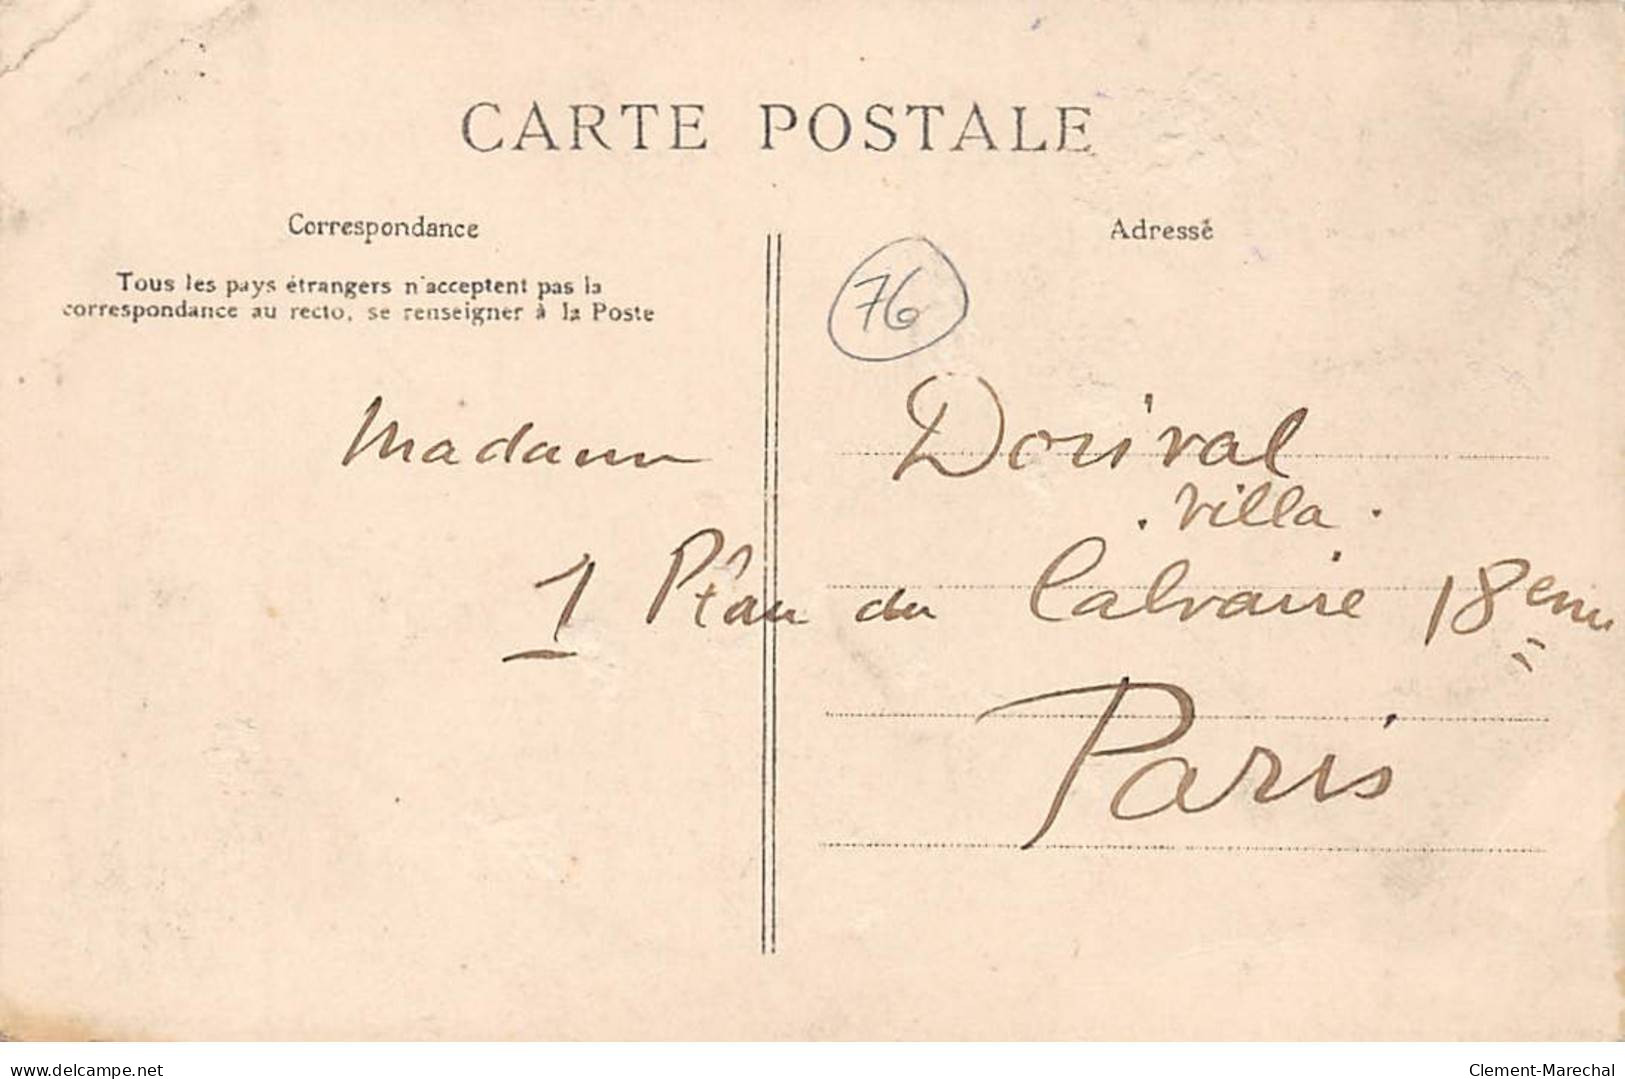 CARTE POSTALE
Correspondance
Adresse
Tous les pays étrangers n'acceptent pas la
correspondance au recto, se renseigner à la Poste
76
Madame Dorival
. Villa .
1 Pl du Calvaire 18eme
Paris
delcampe.net
Clement-Marechal